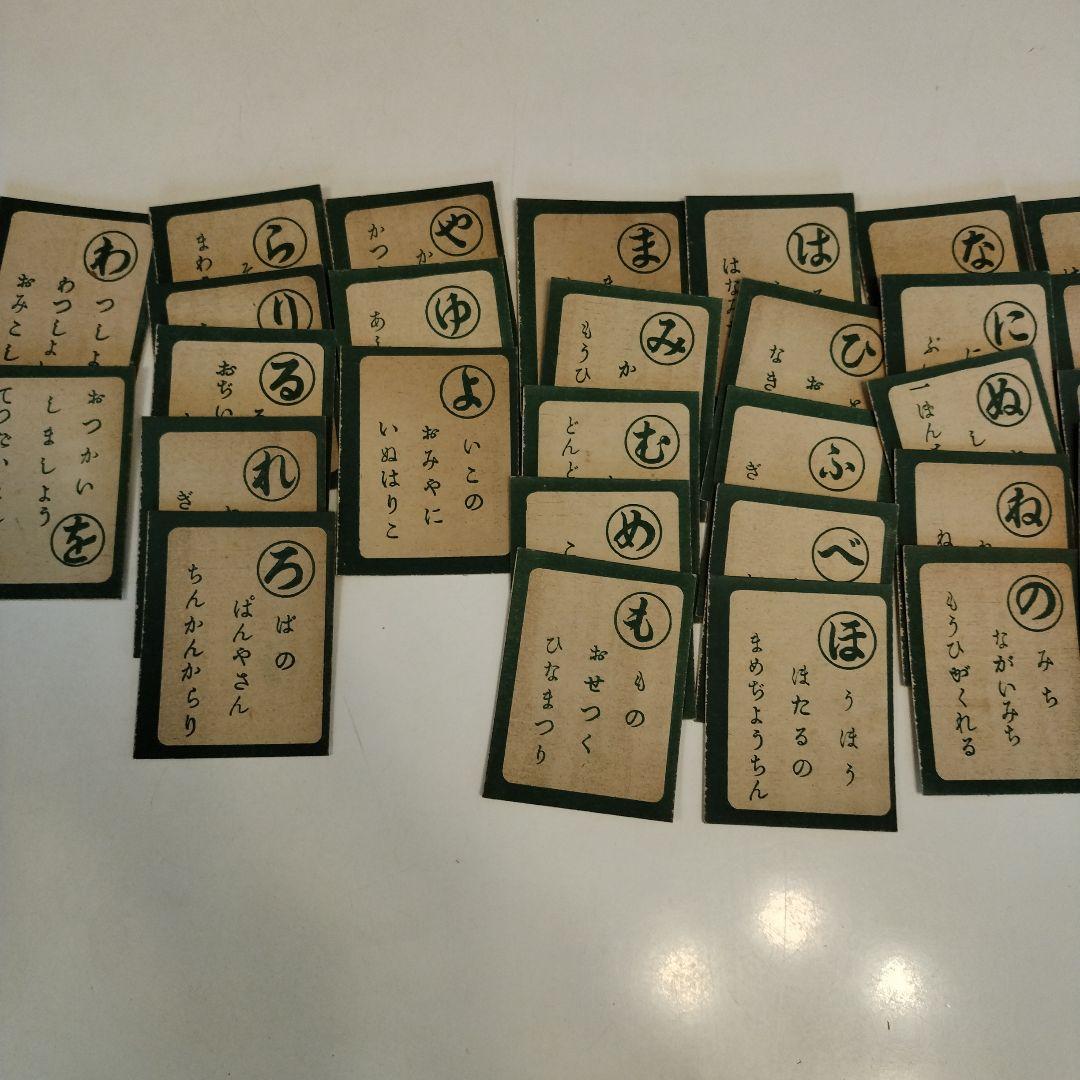 わ
つしよ
わつしよ
おみこし
を
おつかい
しましよう
ら
まわ
り
る
おぢい
れ
ぎ
ろ
ばの
ぱんやさん
ちんかんからり
や
か
かつ
ゆ
あ
よ
いこの
おみやに
いぬはりこ
ま
み
か
もうひ
む
どんど
め
こ
も
もの
おせつく
ひなまつり
は
はなみ
ひ
お
なき
ふ
ぎ
べ
ほ
うほう
ほたるの
まめぢようちん
な
に
ぶ
ぬ
し
一ぽん
ね
ね
の
みち
ながいみち
もうひがくれる